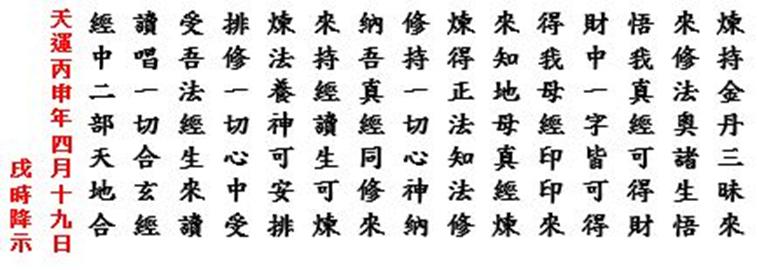 煉持金丹三昧來
來修法奧諸生悟
悟我真經可得財
財中一字皆可得
得我母經印印來
來知地母真經煉
煉得正法知法修
修持一切心神納
納吾真經同修來
來持經讀生可煉
煉法養神可安排
排修一切心中受
受吾法經生來讀
讀唱一切合玄經
經中二部天地合
天運丙申年四月十九日
戌時降示